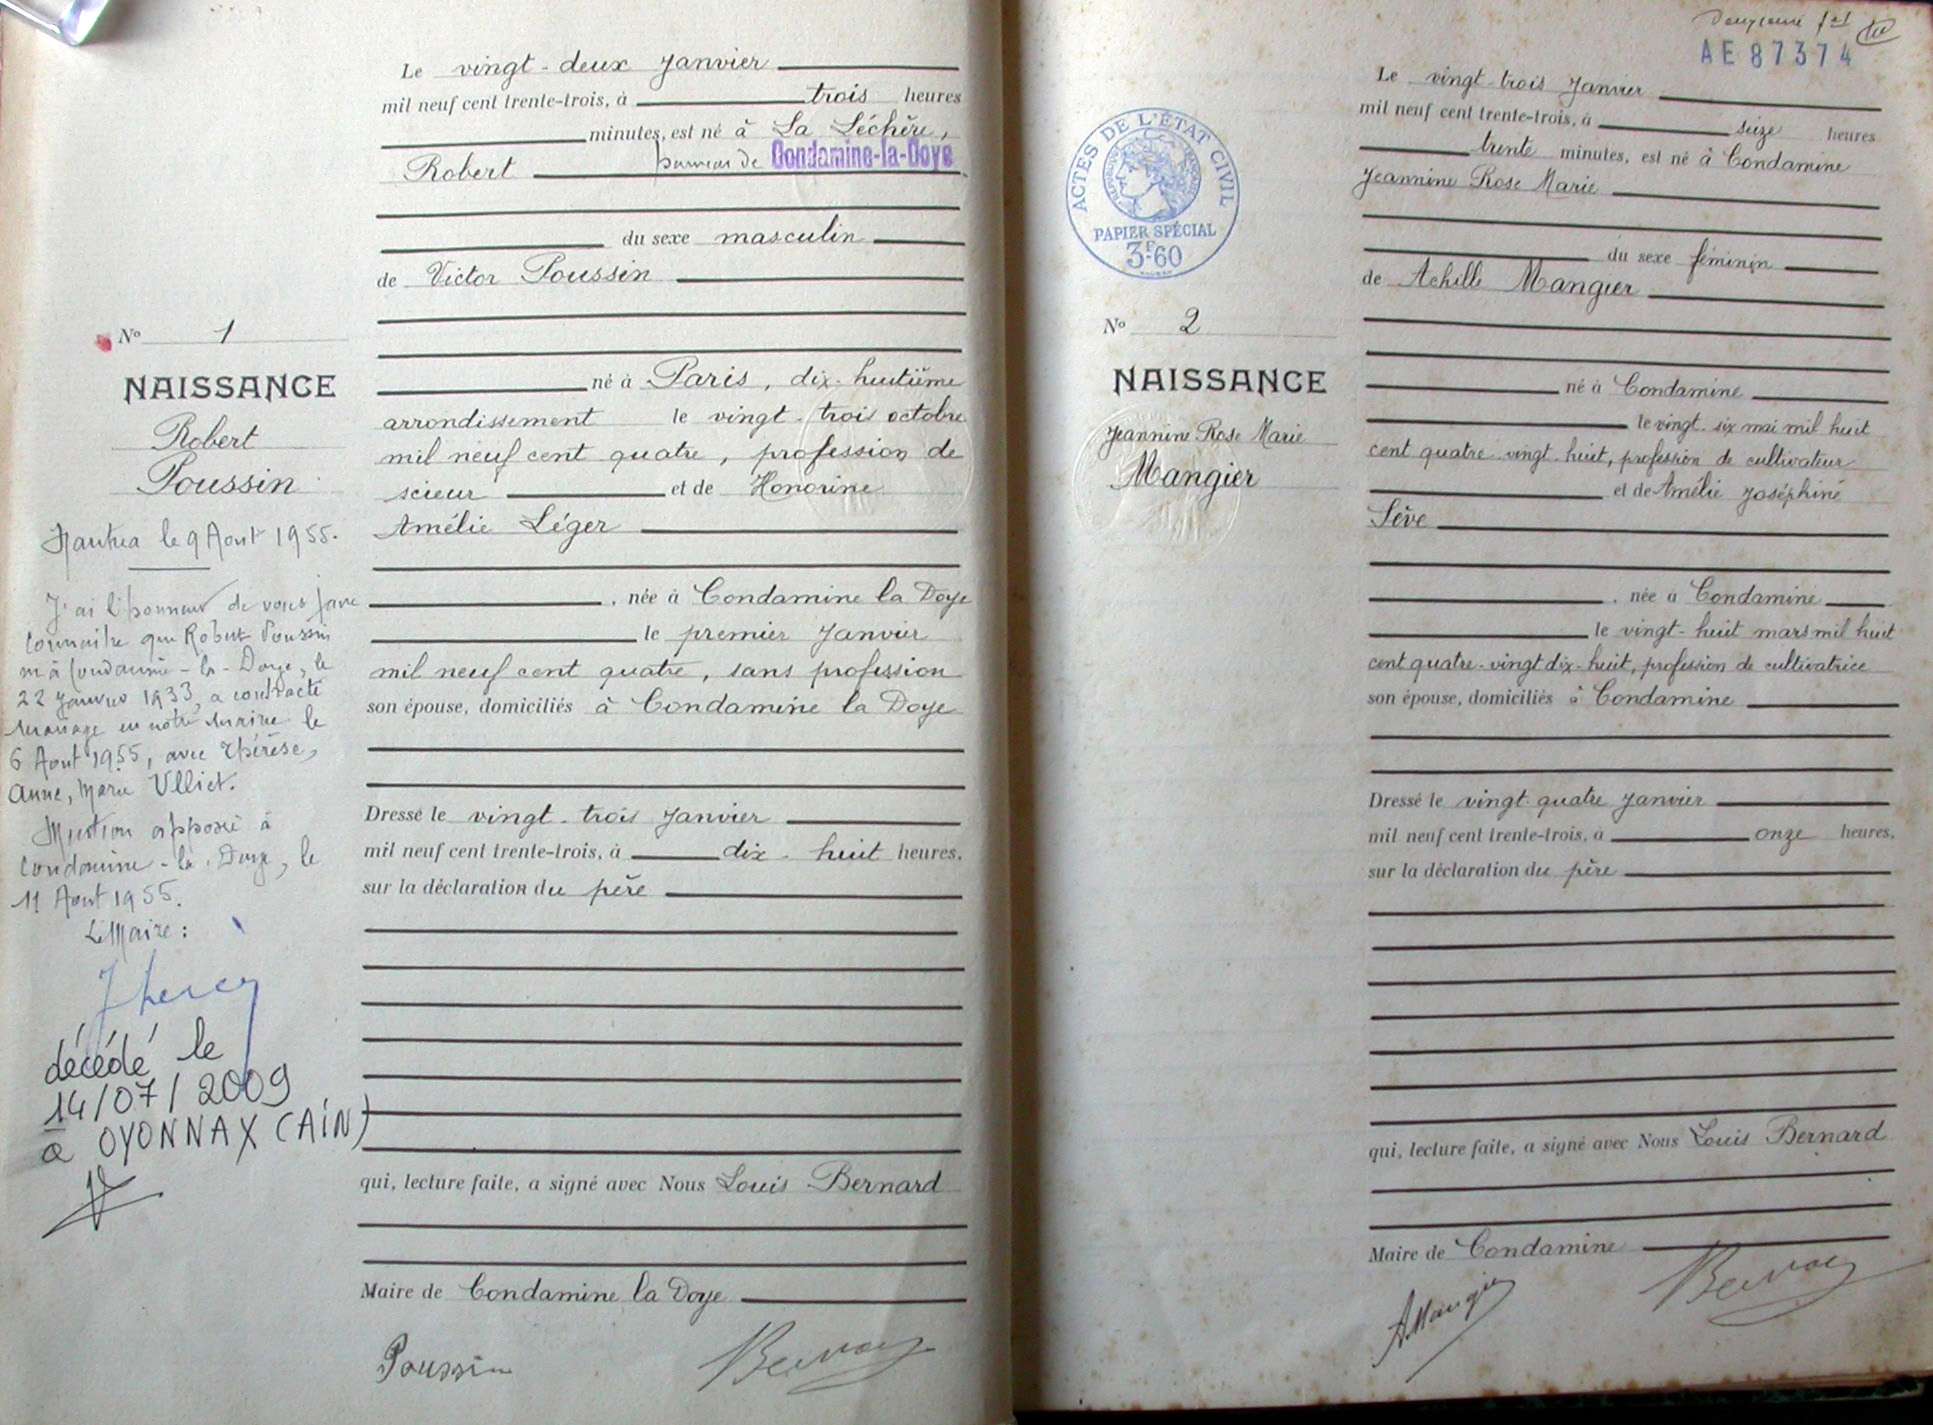 Le vingt-deux janvier
mil neuf cent trente-trois, à trois heures
minutes, est né à La Léchère,
hameau de Condamine-la-Doye
Robert
du sexe masculin
de Victor Poussin
né à Paris, dix-huitième
arrondissement le vingt-trois octobre
mil neuf cent quatre, profession de
scieur et de Honorine
Amélie Léger
, née à Condamine la Doye
le premier janvier
mil neuf cent quatre, sans profession
son épouse, domiciliés à Condamine la Doye
Dressé le vingt-trois janvier
mil neuf cent trente-trois, à dix-huit heures.
sur la déclaration du père
qui, lecture faite, a signé avec Nous Louis Bernard
Maire de Condamine la Doye
Poussin
No 1
NAISSANCE
Robert
Poussin
le 9 Aout 1955.
J'ai l'honneur de vous faire
connaitre que Robert Poussin
né à Condamine-la-Doye, le
22 janvier 1933, a contracté
mariage en notre mairie le
6 Aout 1955, avec Thérèse,
Anne, Marie Ulliet.
Mention apposée à
Condamine-la-Doye, le
11 Aout 1955.
Le Maire :
décédé le
14/07/2009
à OYONNAX (AIN)
AE 87374
ACTES DE L'ÉTAT CIVIL
PAPIER SPÉCIAL
3F.60
No 2
NAISSANCE
Jeannine Rose Marie
Mangier
Le vingt-trois janvier
mil neuf cent trente-trois, à seize heures
trente minutes, est né à Condamine
Jeannine Rose Marie
du sexe féminin
de Achille Mangier
né à Condamine
le vingt-six mai mil huit
cent quatre-vingt-huit, profession de cultivateur
et de Amélie Joséphine
Sève
, née à Condamine
le vingt-huit mars mil huit
cent quatre-vingt dix-huit, profession de cultivatrice
son épouse, domiciliés à Condamine
Dressé le vingt-quatre janvier
mil neuf cent trente-trois, à onze heures,
sur la déclaration du père
qui, lecture faite, a signé avec Nous Louis Bernard
Maire de Condamine
A Mangier